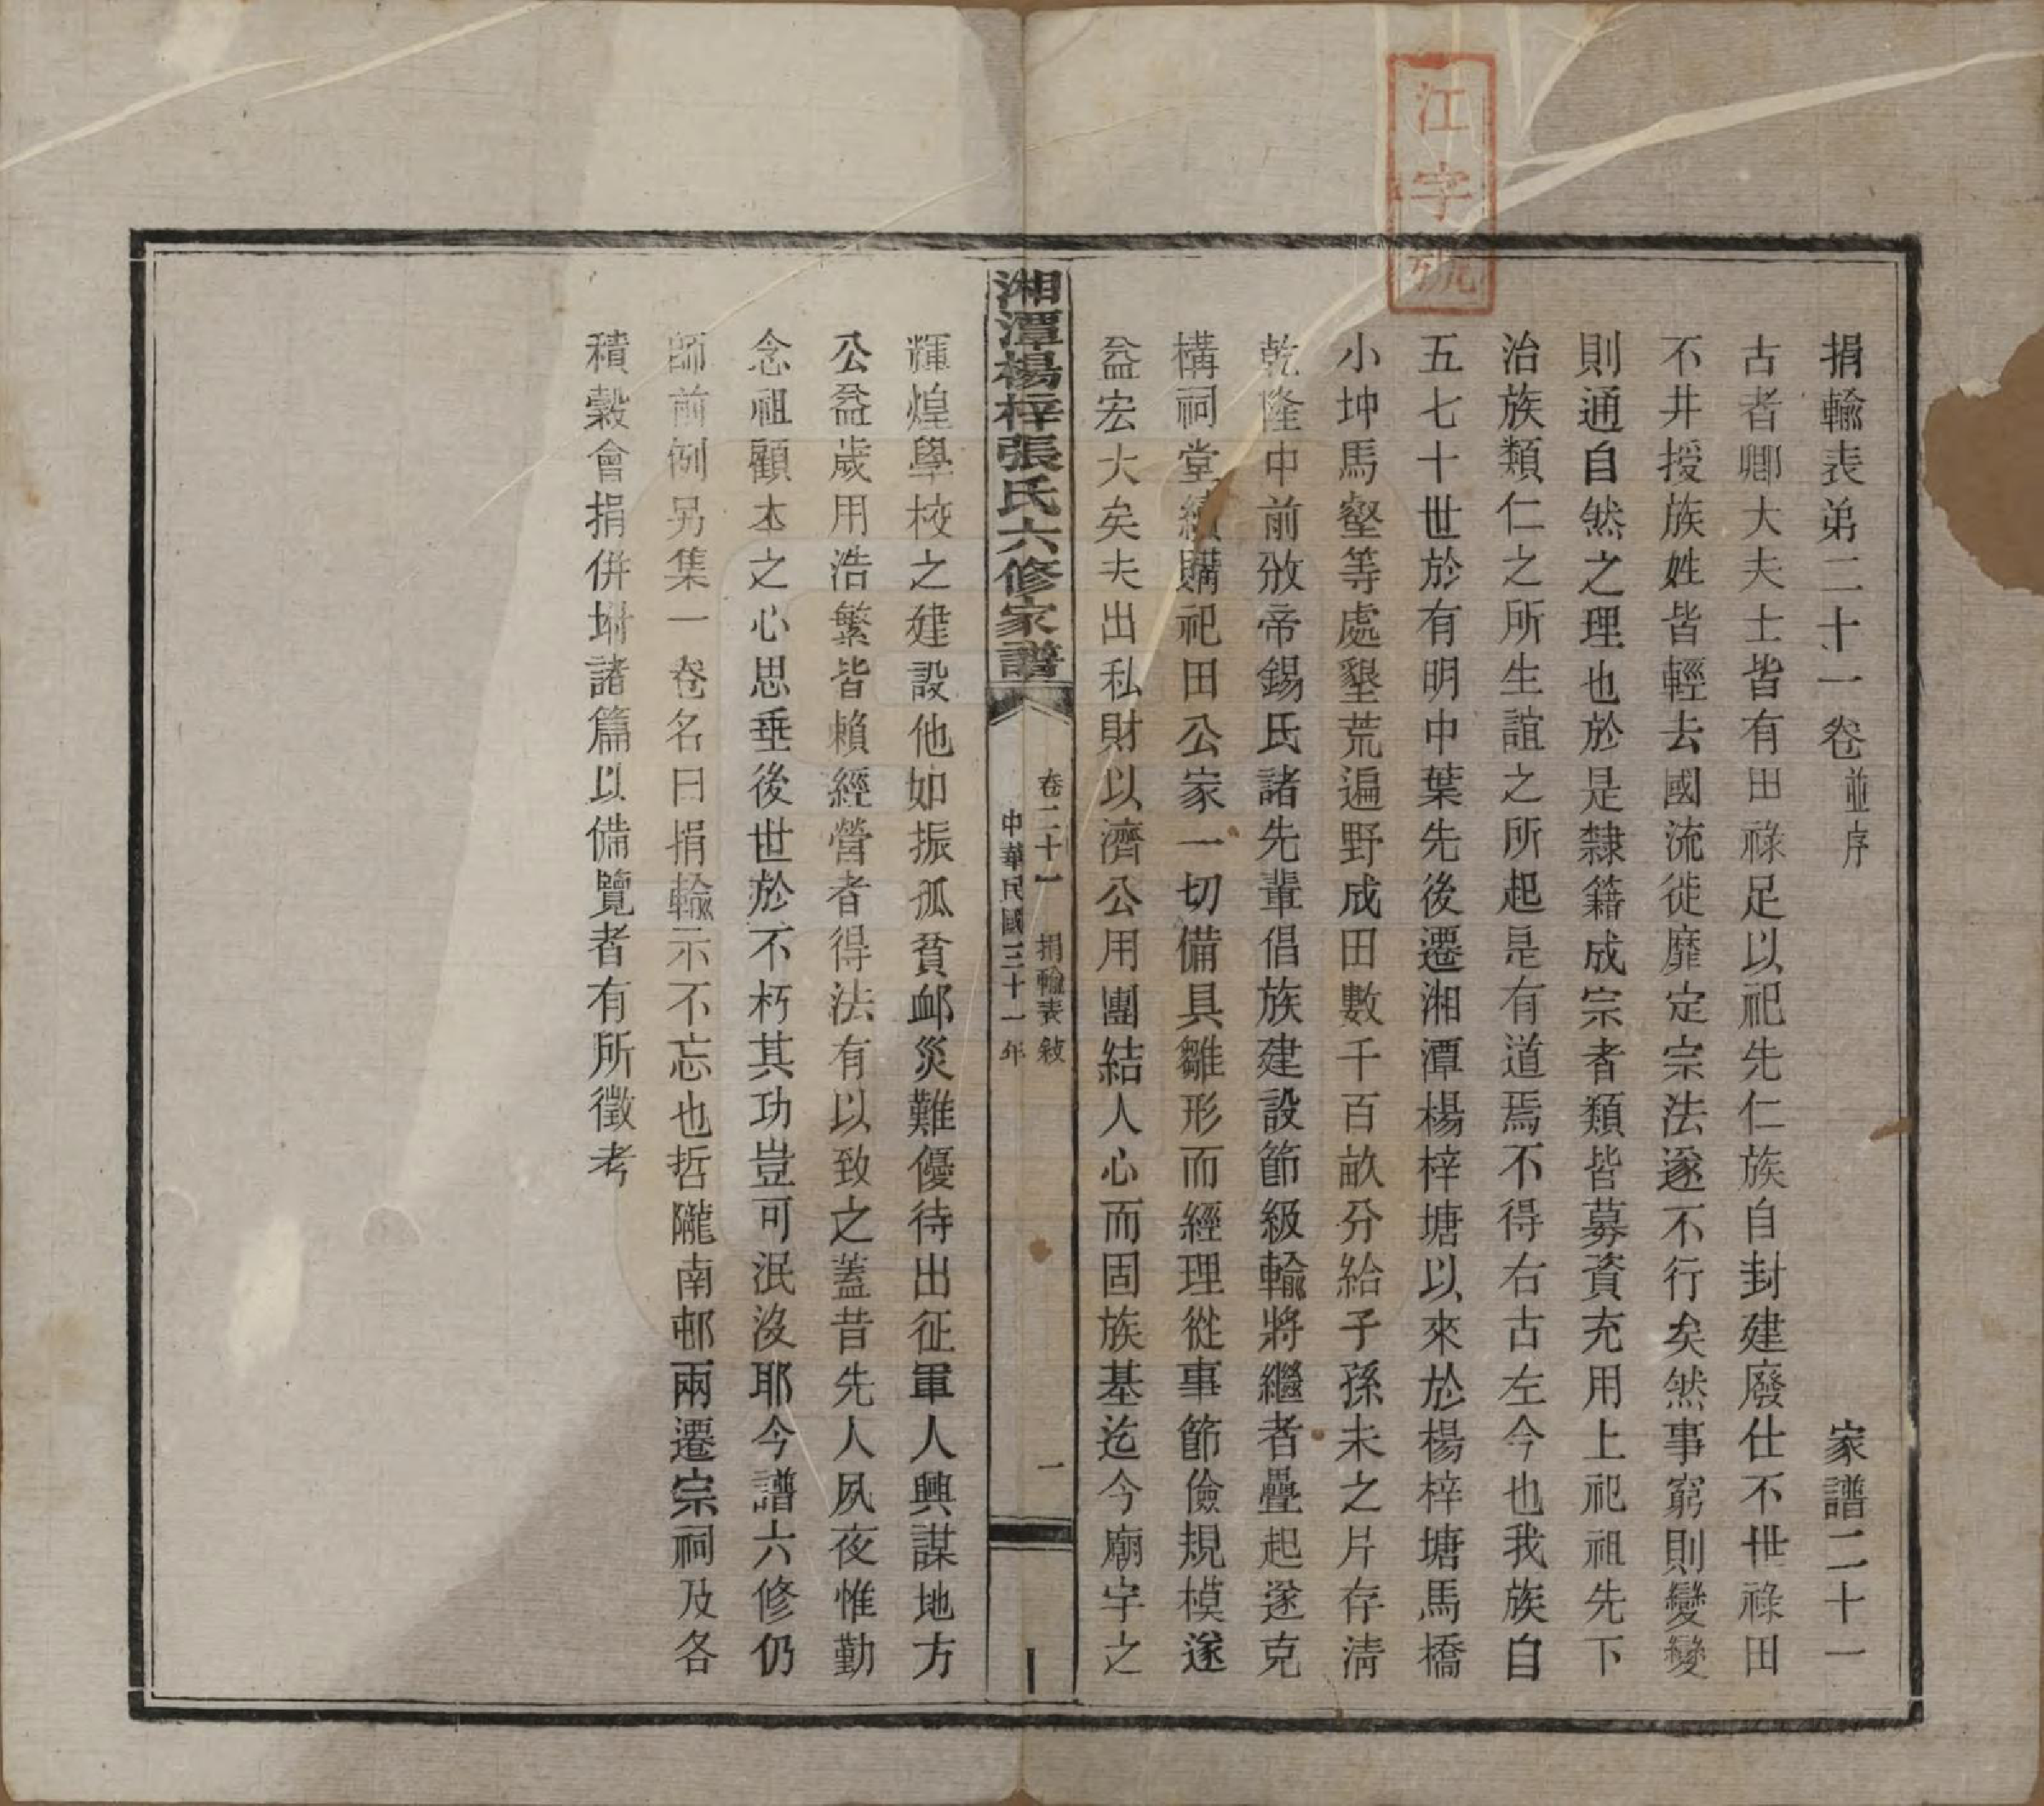 江字號
捐輸表弟二十一卷 並序 家譜二十一
古者卿大夫士皆有田祿足以祀先仁族自封建廢仕不世祿田
不井授族姓皆輕去國流徙靡定宗法遂不行矣然事窮則變變
則通自然之理也於是隸籍成宗者類皆募資充用上祀祖先下
治族類仁之所生誼之所起是有道焉不得右古左今也我族自
五七十世於有明中葉先後遷湘潭楊梓塘以來於楊梓塘馬橋
小坤馬壑等處墾荒遍野成田數千百畝分給子孫未之片存淸
乾隆中前攽帝錫氏諸先輩倡族建設節級輸將繼者疊起遂克
構祠堂續購祀田公家一切備具雛形而經理從事節儉規模遂
益宏大矣夫出私財以濟公用團結人心而固族基迄今廟宇之
湘潭楊梓張氏六修家譜
卷二十一 捐輸表敍 一
中華民國三十一年
輝煌學校之建設他如振孤貧卹災難優待出征軍人興謀地方
公益歲用浩繁皆賴經營者得法有以致之蓋昔先人夙夜惟勤
念祖顧本之心思垂後世於不朽其功豈可泯沒耶今譜六修仍
師前例另集一卷名曰捐輸示不忘也哲隴南邨兩遷宗祠及各
積榖會捐併坿諸篇以備覽者有所徵考